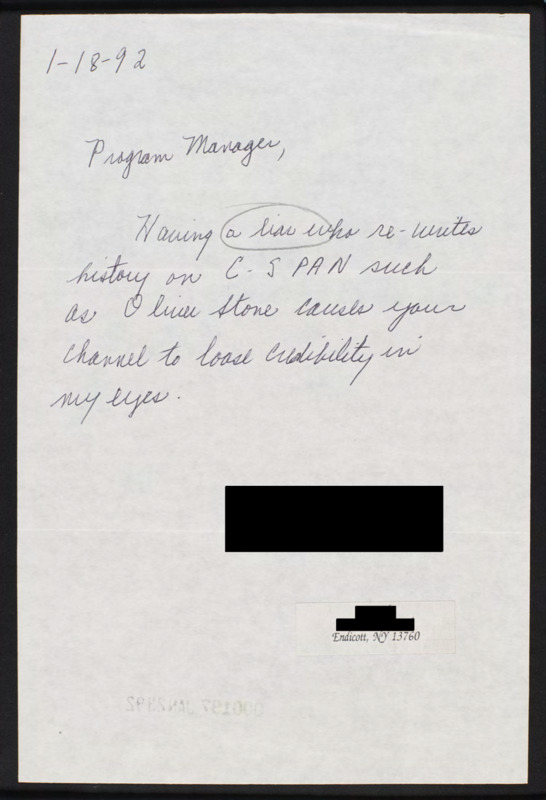 1-18-92
Program Manager,
Having a liar who re-writes
history on C-SPAN such
as Oliver Stone causes your
channel to loose credibility in
my eyes.
Endicott, NY 13760
000197 JAN2392